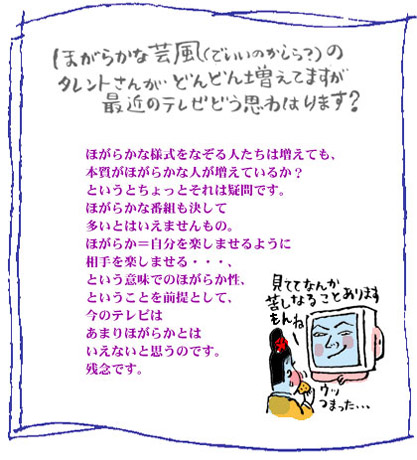 ほがらかな芸風(でいいのかしら?)の
タレントさんが、どんどん増えてますが
最近のテレビどう思わはります?
ほがらかな様式をなぞる人たちは増えても、
本質がほがらかな人が増えているか?
というとちょっとそれは疑問です。
ほがらかな番組も決して
多いとはいえませんもの。
ほがらか=自分を楽しませるように
相手を楽しませる・・・、
という意味でのほがらか性、
ということを前提として、
今のテレビは
あまりほがらかとは
いえないと思うのです。
残念です。
見ててなんか
苦しなることあります
もんね
ウッ
つまった...